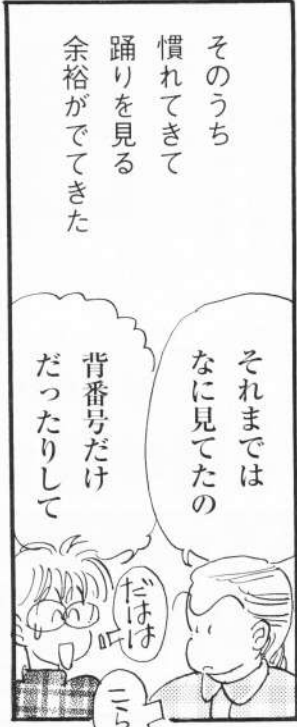 そのうち
慣れてきて
踊りを見る
余裕がでてきた
それまでは
なに見てたの
背番号だけ
だったりして
だはは
こら